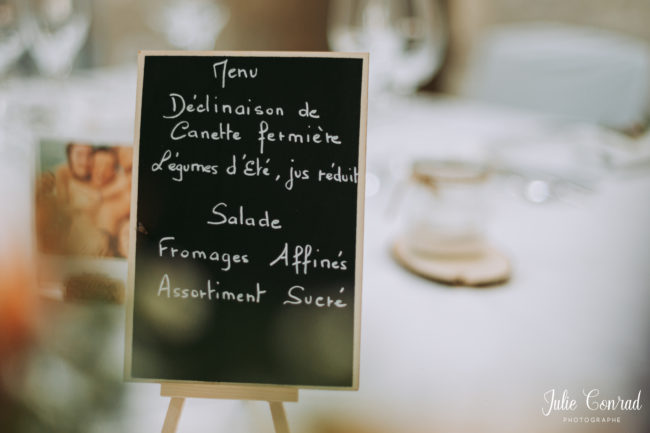 Menu
Déclinaison de
Canette fermière
Légumes d'Eté, jus réduit
Salade
Fromages Affinés
Assortiment Sucré
Julie Conrad
PHOTOGRAPHE